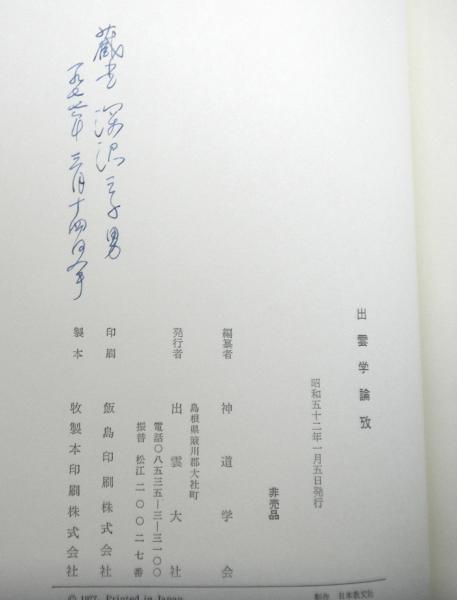 出雲学論攷
昭和五十二年一月五日発行
非売品
編纂者 神道学会
島根県簸川郡大社町
発行者 出雲大社
電話〇八五三五―三―三一〇〇
振替 松江 二〇〇二七番
印刷 飯島印刷株式会社
製本 牧製本印刷株式会社
蔵書 深沢三千男
一九七七年三月十四日
© 1977, Printed in Japan
製作 日本教文社